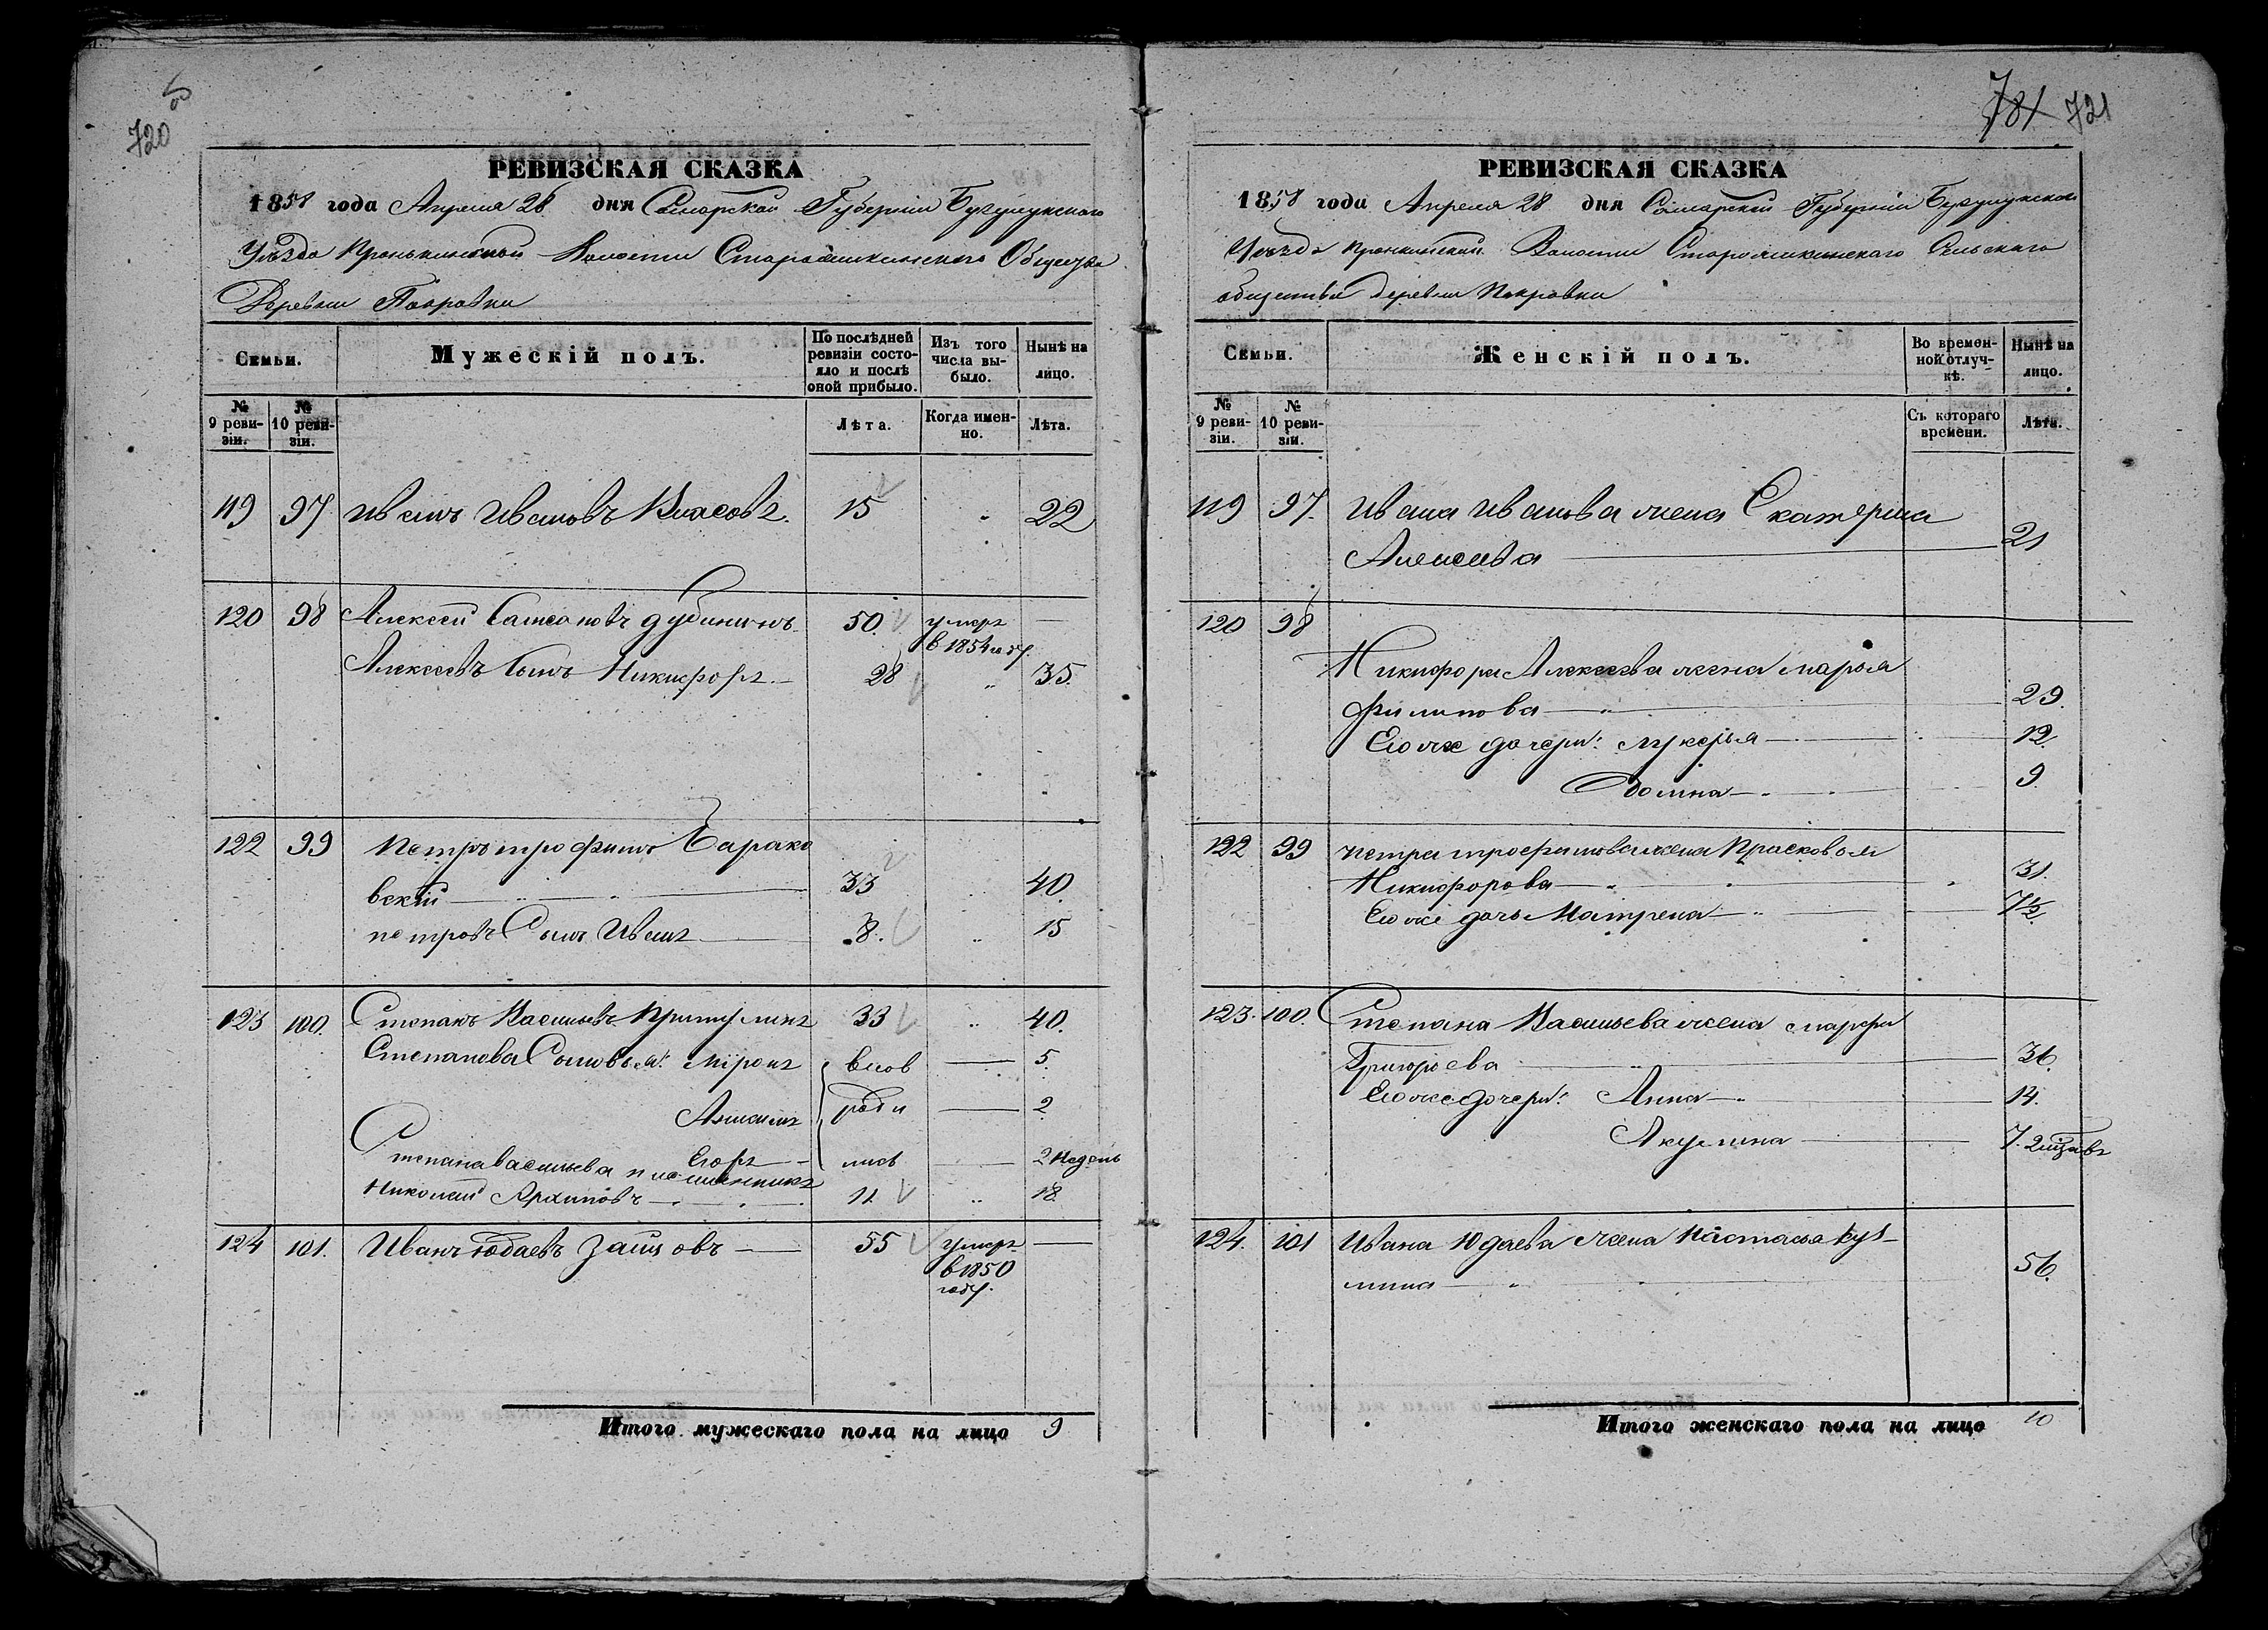 720
РЕВИЗСКАЯ СКАЗКА
1858 года Апреля 28 дня Самарской Губернии Бугульминского
Уезда Пронькинской Волости Старо Общества
Деревни Покровки
Семьи.
Мужескій полъ.
По послѣдней ревизіи состояло и послѣ оной прибыло.
Изъ того числа выбыло.
Нынѣ на лицо.
№ 9 ревизіи.
№ 10 ревизіи.
Лѣта.
Когда именно.
Лѣта.
119 97 Иванъ Ивановъ Власовъ. 15 „ 22
120 98 Алексей Самсоновъ Дубининъ 50. умеръ в 1854 году. —
Алексеевъ Сынъ Никифоръ — 28 „ 35.
122 99 Петръ трофимъ
вскій — 33 „ 40.
петровъ Сынъ Иванъ 8. „ 15
123 100. Степанъ Васильевъ Притулинъ 33 „ 40.
Степанова Сыновья: Миронъ вновь — 5.
роди — 2
Егоръ — лись — 2 недель
Степана Васильева племянникъ
Николай Архиповъ — 11. „ 18.
124 101. Иванъ Юдаевъ Зайцовъ — 55 умеръ в 1850 году. —
Итого мужескаго пола на лицо 9
781 721
РЕВИЗСКАЯ СКАЗКА
1858 года Апреля 28 дня Самарской Губернии
Уезда Пронкинской Волости Сельскаго
общества деревни Покровки
Семьи.
Женскій полъ.
Во временной отлучкѣ.
Нынѣ на лицо.
№ 9 ревизіи.
№ 10 ревизіи.
Съ котораго времени.
Лѣта.
119 97. Ивана Иванова жена Екатерина
Алексеева — 21
120 98
Никифора Алексеева жена марья
филипова — 29.
Ево же дочери: лукерья — 12.
Домна — 9.
122 99 петра трофимова жена Прасковья
Никифорова — 31.
Ево же дочь Матрена — 7½.
123. 100. Степана Васильева жена марфа
Григорьева — 36.
Ево же дочери: Анна — 14.
Акулина — 7. 2
124. 101 Ивана Юдаева жена Настасья Куз-
мина — 56.
Итого женскаго пола на лицо 10